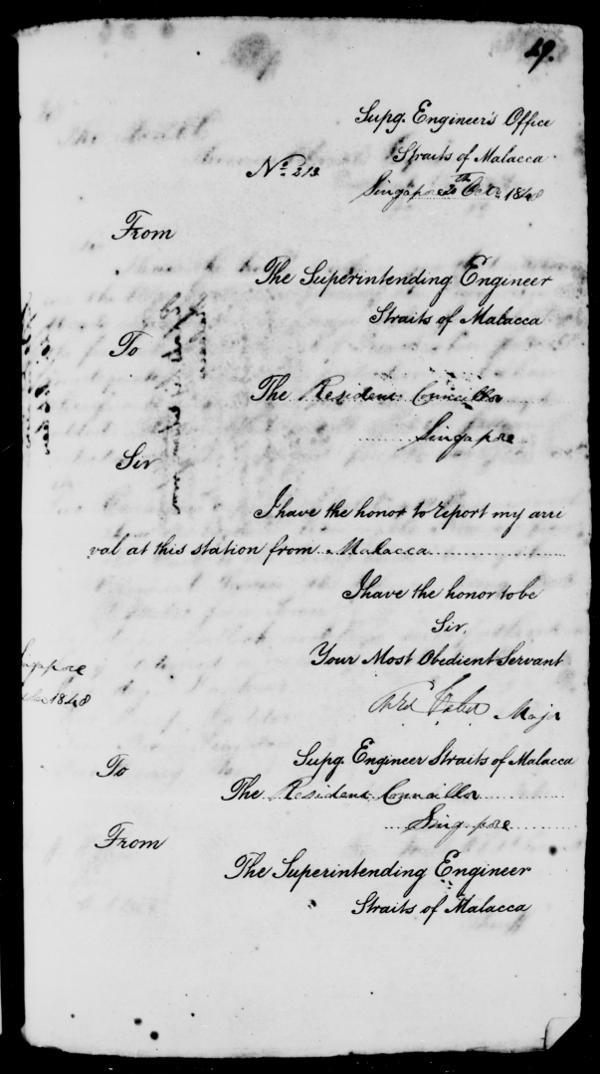 49.
Supg. Engineer's Office
Straits of Malacca
No. 213
Singapore 20th Octr. 1848
From
The Superintending Engineer
Straits of Malacca
To
The Resident Councillor
Singapore
Sir
I have the honor to report my arri
val at this station from Malacca
I have the honor to be
Sir,
Your Most Obedient Servant
Major
Supg. Engineer Straits of Malacca
To
The Resident Councillor
Singapore
From
The Superintending Engineer
Straits of Malacca